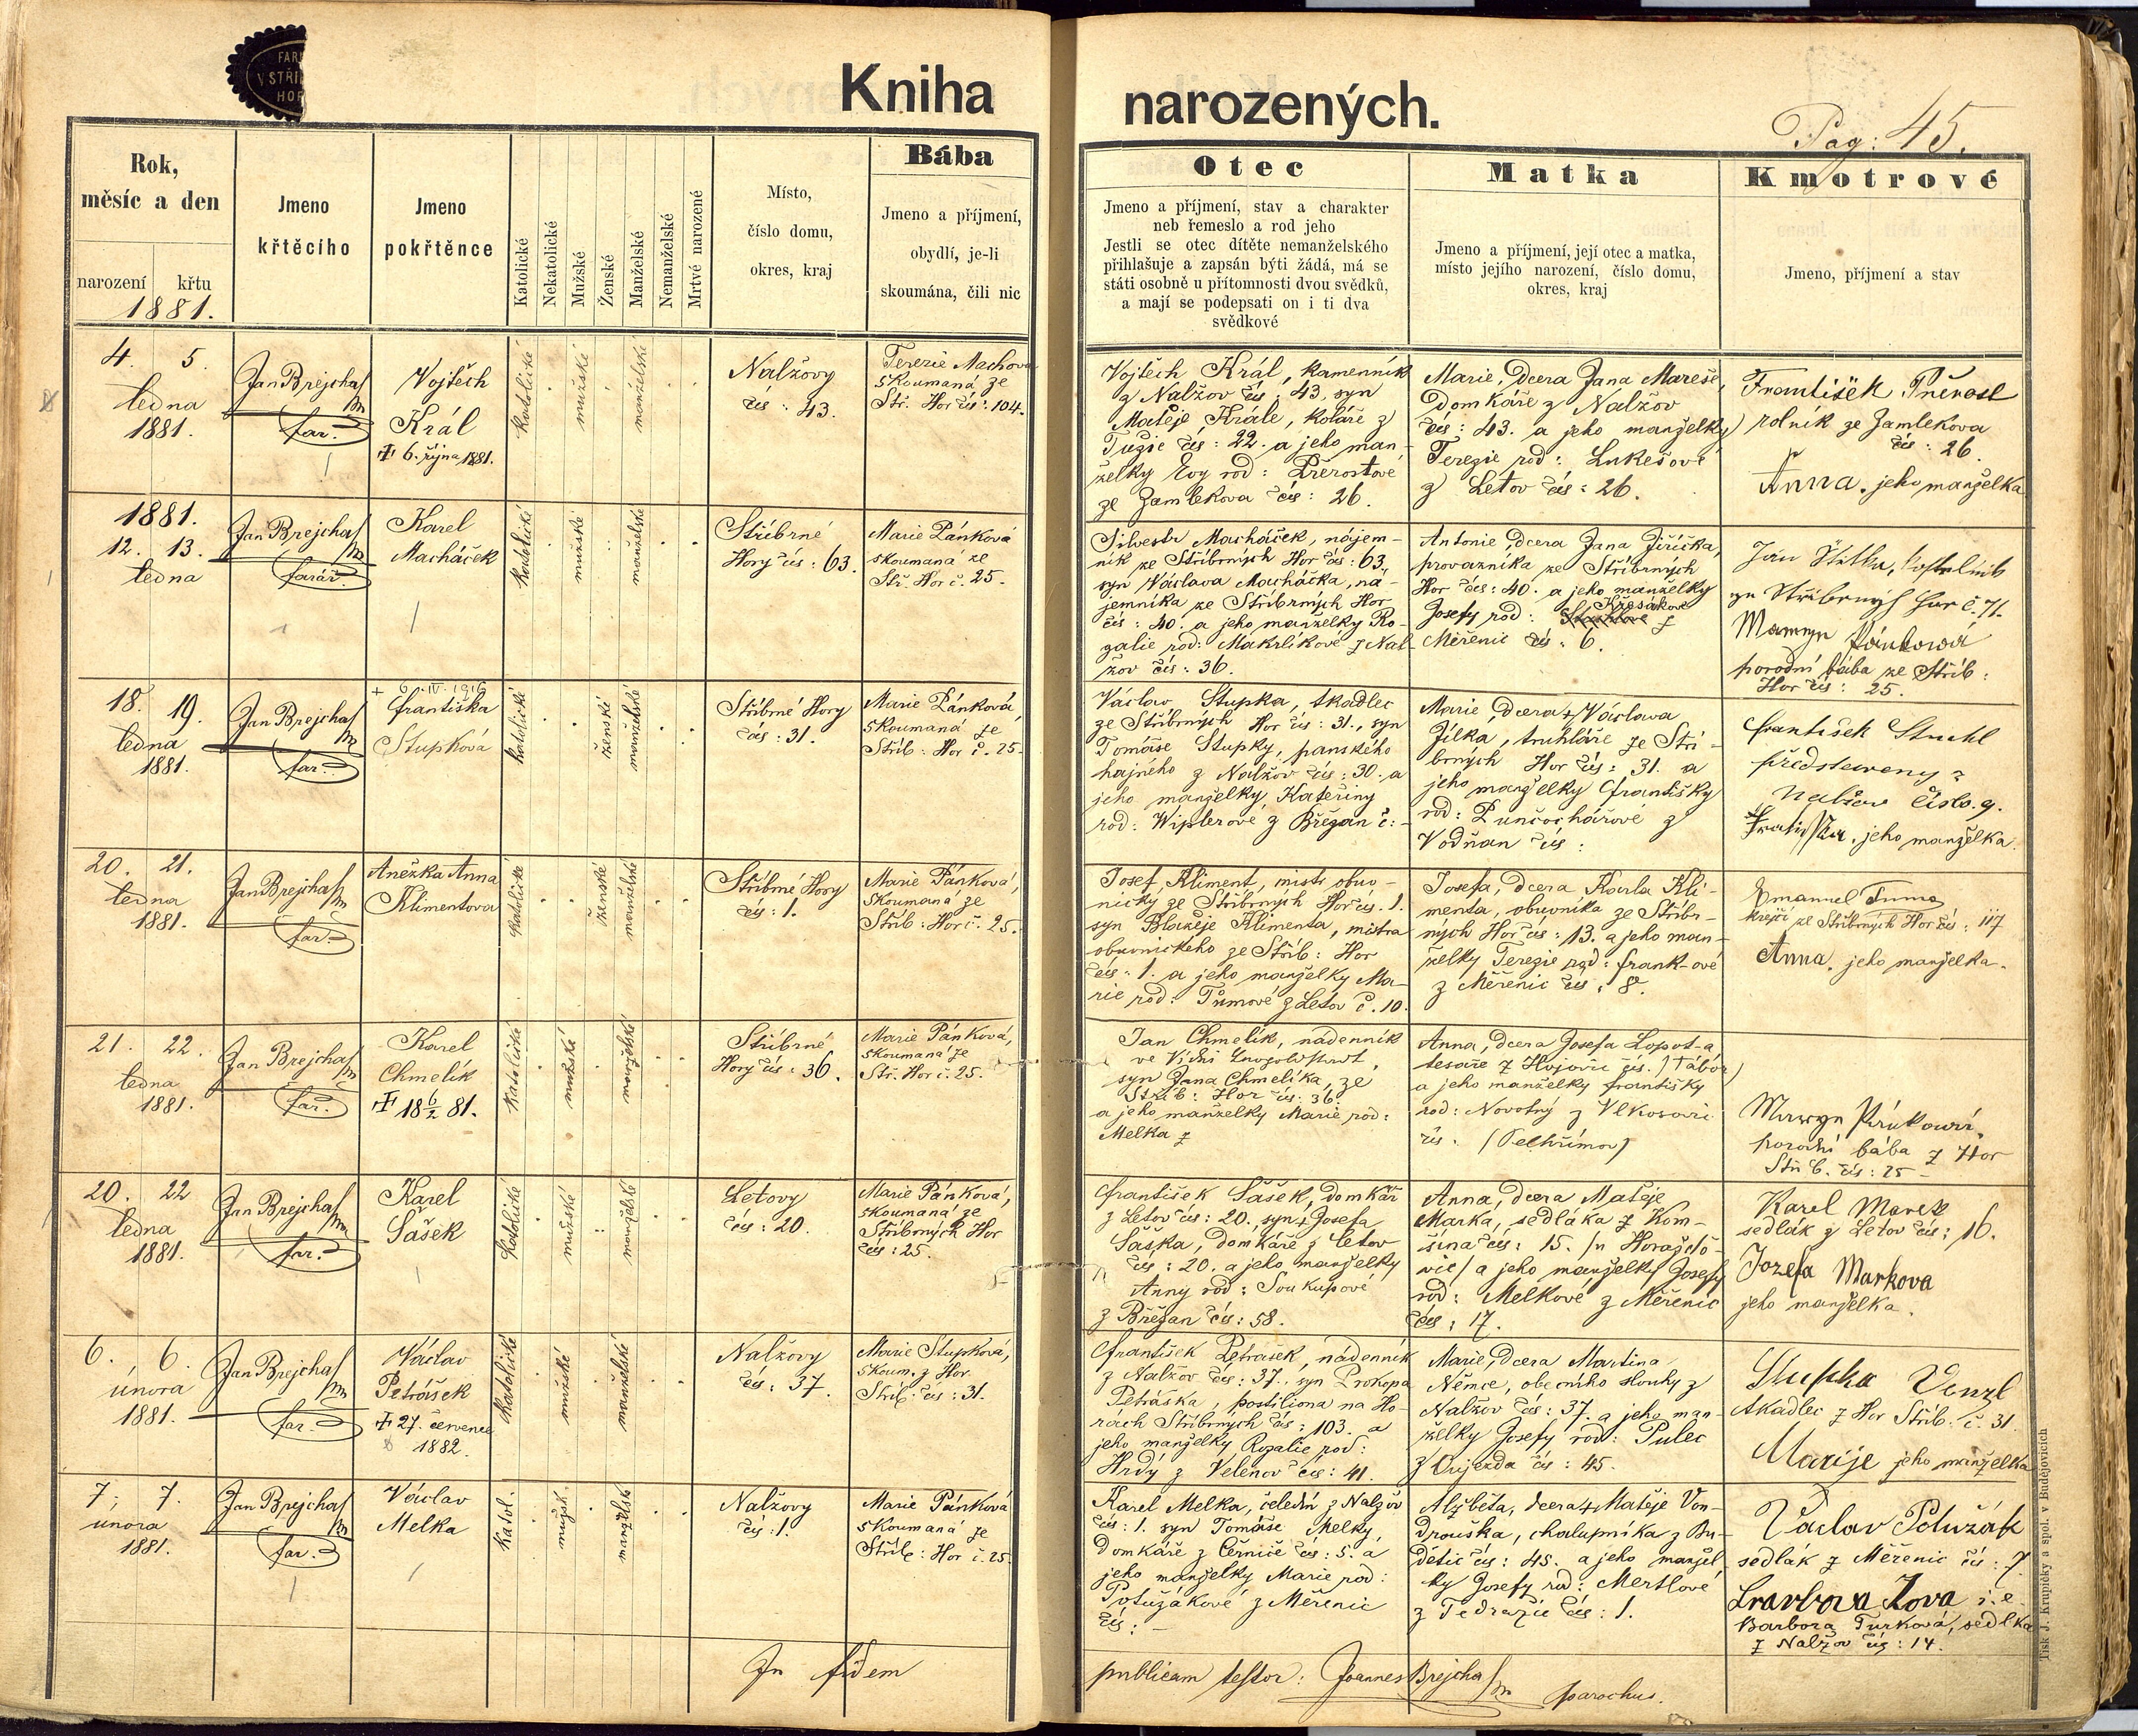 FAR
V STŘÍ
HOR
Kniha narozených.
Pag: 45.
Rok,
měsíc a den
narození křtu
1881.
Jmeno
křtěcího
Jmeno
pokřtěnce
Katolické
Nekatolické
Mužské
Ženské
Manželské
Nemanželské
Mrtvé narozené
Místo,
číslo domu,
okres, kraj
Bába
Jmeno a příjmení,
obydlí, je-li
skoumána, čili nic
Otec
Jmeno a příjmení, stav a charakter
neb řemeslo a rod jeho
Jestli se otec dítěte nemanželského
přihlašuje a zapsán býti žádá, má se
státi osobně u přítomnosti dvou svědků,
a mají se podepsati on i ti dva
svědkové
Matka
Jmeno a příjmení, její otec a matka,
místo jejího narození, číslo domu,
okres, kraj
Kmotrové
Jmeno, příjmení a stav
4. 5.
ledna
1881.
Jan Brejcha
far.
Vojtěch
Král
6. října 1881.
katolické
mužské
manželské
Nalžovy
čís: 43.
Terezie Machova
skoumaná ze
Stř. Hor čís: 104.
Vojtěch Král, kamenník
z Nalžov čís: 43, syn
Matěje Krále, koláře z
Tužic čís: 22. a jeho man-
želky Evy rod: Přerostové
ze Zamlekova čís: 26.
Marie, dcera Jana Mareše,
domkáře z Nalžov
čís: 43. a jeho manželky
Terezie rod: Lukešové
z Letov čís: 26.
František Přerost
rolník ze Zamlekova
čís: 26.
Anna, jeho manželka
1881.
12. 13.
ledna
Jan Brejcha
farář.
Karel
Macháček
katolické
mužské
manželské
Stříbrné
Hory čís: 63.
Marie Pánková
skoumaná ze
Stř. Hor č. 25.
Silvestr Macháček, nájem-
ník ze Stříbrných Hor čís: 63,
syn Václava Macháčka, ná-
jemníka ze Stříbrných Hor
čís: 40. a jeho manželky Ro-
zalie rod: Makrlíkové z Nal-
žov čís: 36.
Antonie, dcera Jana Jiříčka,
provazníka ze Stříbrných
Hor čís: 40. a jeho manželky
Křesákové
Josefy rod: z
Měřenic čís: 6.
Jan
ze Stříbrných Hor č. 71.
Maryn Pánkowá
porodní bába ze Stříb:
Hor čís: 25.
18. 19.
ledna
1881.
Jan Brejcha
far.
+ 6. IV. 1916
Františka
Stupková
katolické
ženské
manželské
Stříbrné Hory
čís: 31.
Marie Pánková,
skoumaná ze
Stříb: Hor č. 25.
Václav Stupka, tkadlec
ze Stříbrných Hor čís: 31., syn
Tomáše Stupky, panského
hajného z Nalžov čís: 30. a
jeho manželky Kateřiny
rod: Wiplerové z Břežan č:
Marie, dcera + Václava
Jílka, truhláře ze Stří-
brných Hor čís: 31. a
jeho manželky Františky
rod: Punčochářové z
Vodňan čís:
František Struhl
představený z
Nalžow číslo. 9.
jeho manželka.
20. 21.
ledna
1881.
Jan Brejcha
far.
Anežka Anna
Klimentova
katolické
ženské
manželské
Stříbrné Hory
čís: 1.
Marie Pánková,
skoumaná ze
Stříb: Hor č. 25.
Josef Kliment, mistr obuv-
nický ze Stříbrných Hor čís. 1.
syn Blažeje Klimenta, mistra
obuvnického ze Stříb: Hor
čís: 1. a jeho manželky Ma-
rie rod: Tůmové z Letov č. 10.
Josefa, dcera Karla Kli-
menta, obuvníka ze Stříbr-
ných Hor čís: 13. a jeho man-
želky Terezie rod: Frank-ové
z Měřenic čís: 8.
Emanuel Tuma,
krejčí ze Stříbrných Hor čís: 117
Anna, jeho manželka.
21. 22.
ledna
1881.
Jan Brejcha
far.
Karel
Chmelík
18 6/2 81.
katolické
mužské
manželské
Stříbrné
Hory čís: 36.
Marie Pánková,
skoumaná ze
Stř. Hor č. 25.
Jan Chmelík, nádenník
ve Vídni
syn Jana Chmelíka, ze
Stříb: Hor čís: 36.
a jeho manželky Marie rod:
Melka z
Anna, dcera Josefa Lopot-a
tesaře z Hojovic čís. (Tábor)
a jeho manželky Františky
rod: Novotný z Vlkosovic
čís. (Pelhřimov)
Maryn Pánkowá,
porodní bába z Hor
Stříb. čís: 25
20. 22
ledna
1881.
Jan Brejcha
far.
Karel
Šašek
katolické
mužské
manželské
Letovy
čís: 20.
Marie Pánková,
skoumaná ze
Stříbrných Hor
čís: 25.
František Šašek, domkář
z Letov čís: 20., syn + Josefa
Šaška, domkáře z Letov
čís: 20. a jeho manželky
Anny rod: Soukupové
z Břežan čís: 58.
Anna, dcera Matěje
Marka, sedláka z Kom-
šína čís: 15. (u Horažďo-
vic) a jeho manželky Josefy
rod: Melkové z Měřenic
čís: 17.
Karel Marek
sedlák z Letov čís: 16.
Jozefa Markova
jeho manželka.
6. 6.
února
1881.
Jan Brejcha
far.
Václav
Petrášek
27. července
1882.
katolické
mužské
manželské
Nalžovy
čís: 37.
Marie Stupková,
skoum. z Hor
Stříb. čís: 31.
František Petrášek, nádenník
z Nalžov čís: 37., syn Prokopa
Petráška, postiliona na Ho-
rách Stříbrných čís: 103. a
jeho manželky Rozalie rod:
Hrdý z Velenov čís: 41.
Marie, dcera Martina
Němce, obecního slouhy z
Nalžov čís: 37. a jeho man-
želky Josefy rod: Pulec
z Oujezda čís: 45.
Stupka Venzl
tkadlec z Hor Stříb. č. 31.
Marije jeho manželka
7. 7.
února
1881.
Jan Brejcha
far.
Václav
Melka
katol.
mužsk.
manželské
Nalžovy
čís: 1.
Marie Pánková
skoumaná ze
Stříb: Hor č. 25.
Karel Melka, čeledín z Nalžov
čís: 1. syn Tomáše Melky,
domkáře z Černíče čís: 5. a
jeho manželky Marie rod:
Potužákové z Měřenic
čís: –
Alžběta, dcera + Matěje Von-
drouška, chalupníka z Bu-
dětic čís: 45. a jeho manžel-
ky Josefy rod: Mertlové
z Tedražic čís: 1.
Václav Potužák
sedlák z Měřenic čís: 7.
i. e.
Barbora Turková, sedlka
z Nalžov čís: 14.
In fidem publicam testor: Joannes Brejcha
parochus.
Tisk J. Krupičky a spol. v Budějovicích